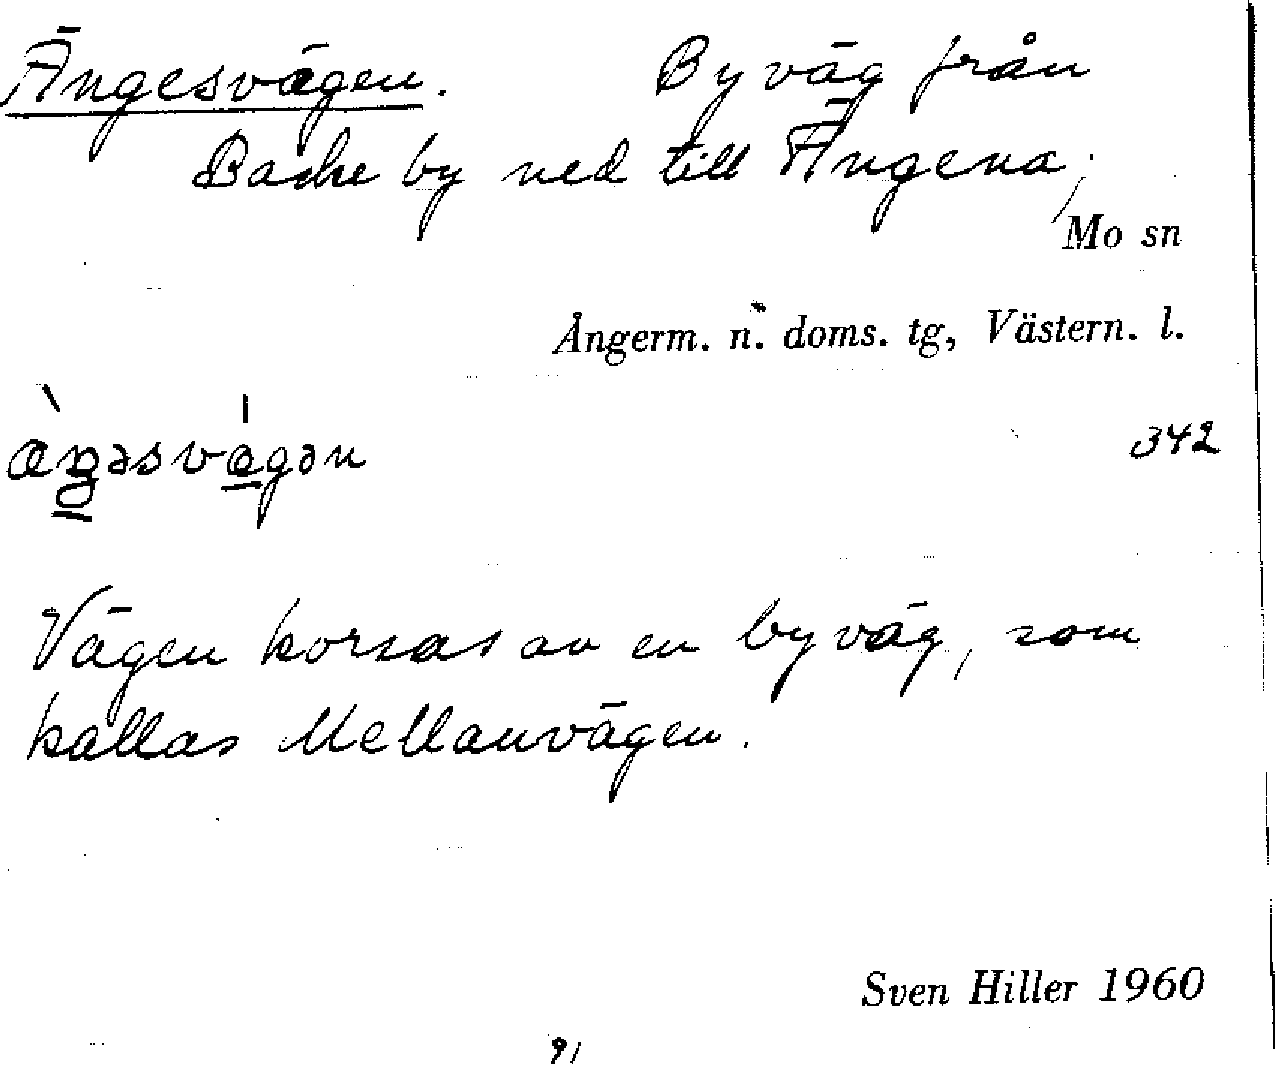 Ängesvägen. Byväg från
Backe by ned till Ängena,
Mo sn
Ångerm. n. doms. tg, Västern. l.
342
Vägen korsas av en byväg, som
kallas Mellanvägen.
Sven Hiller 1960
91